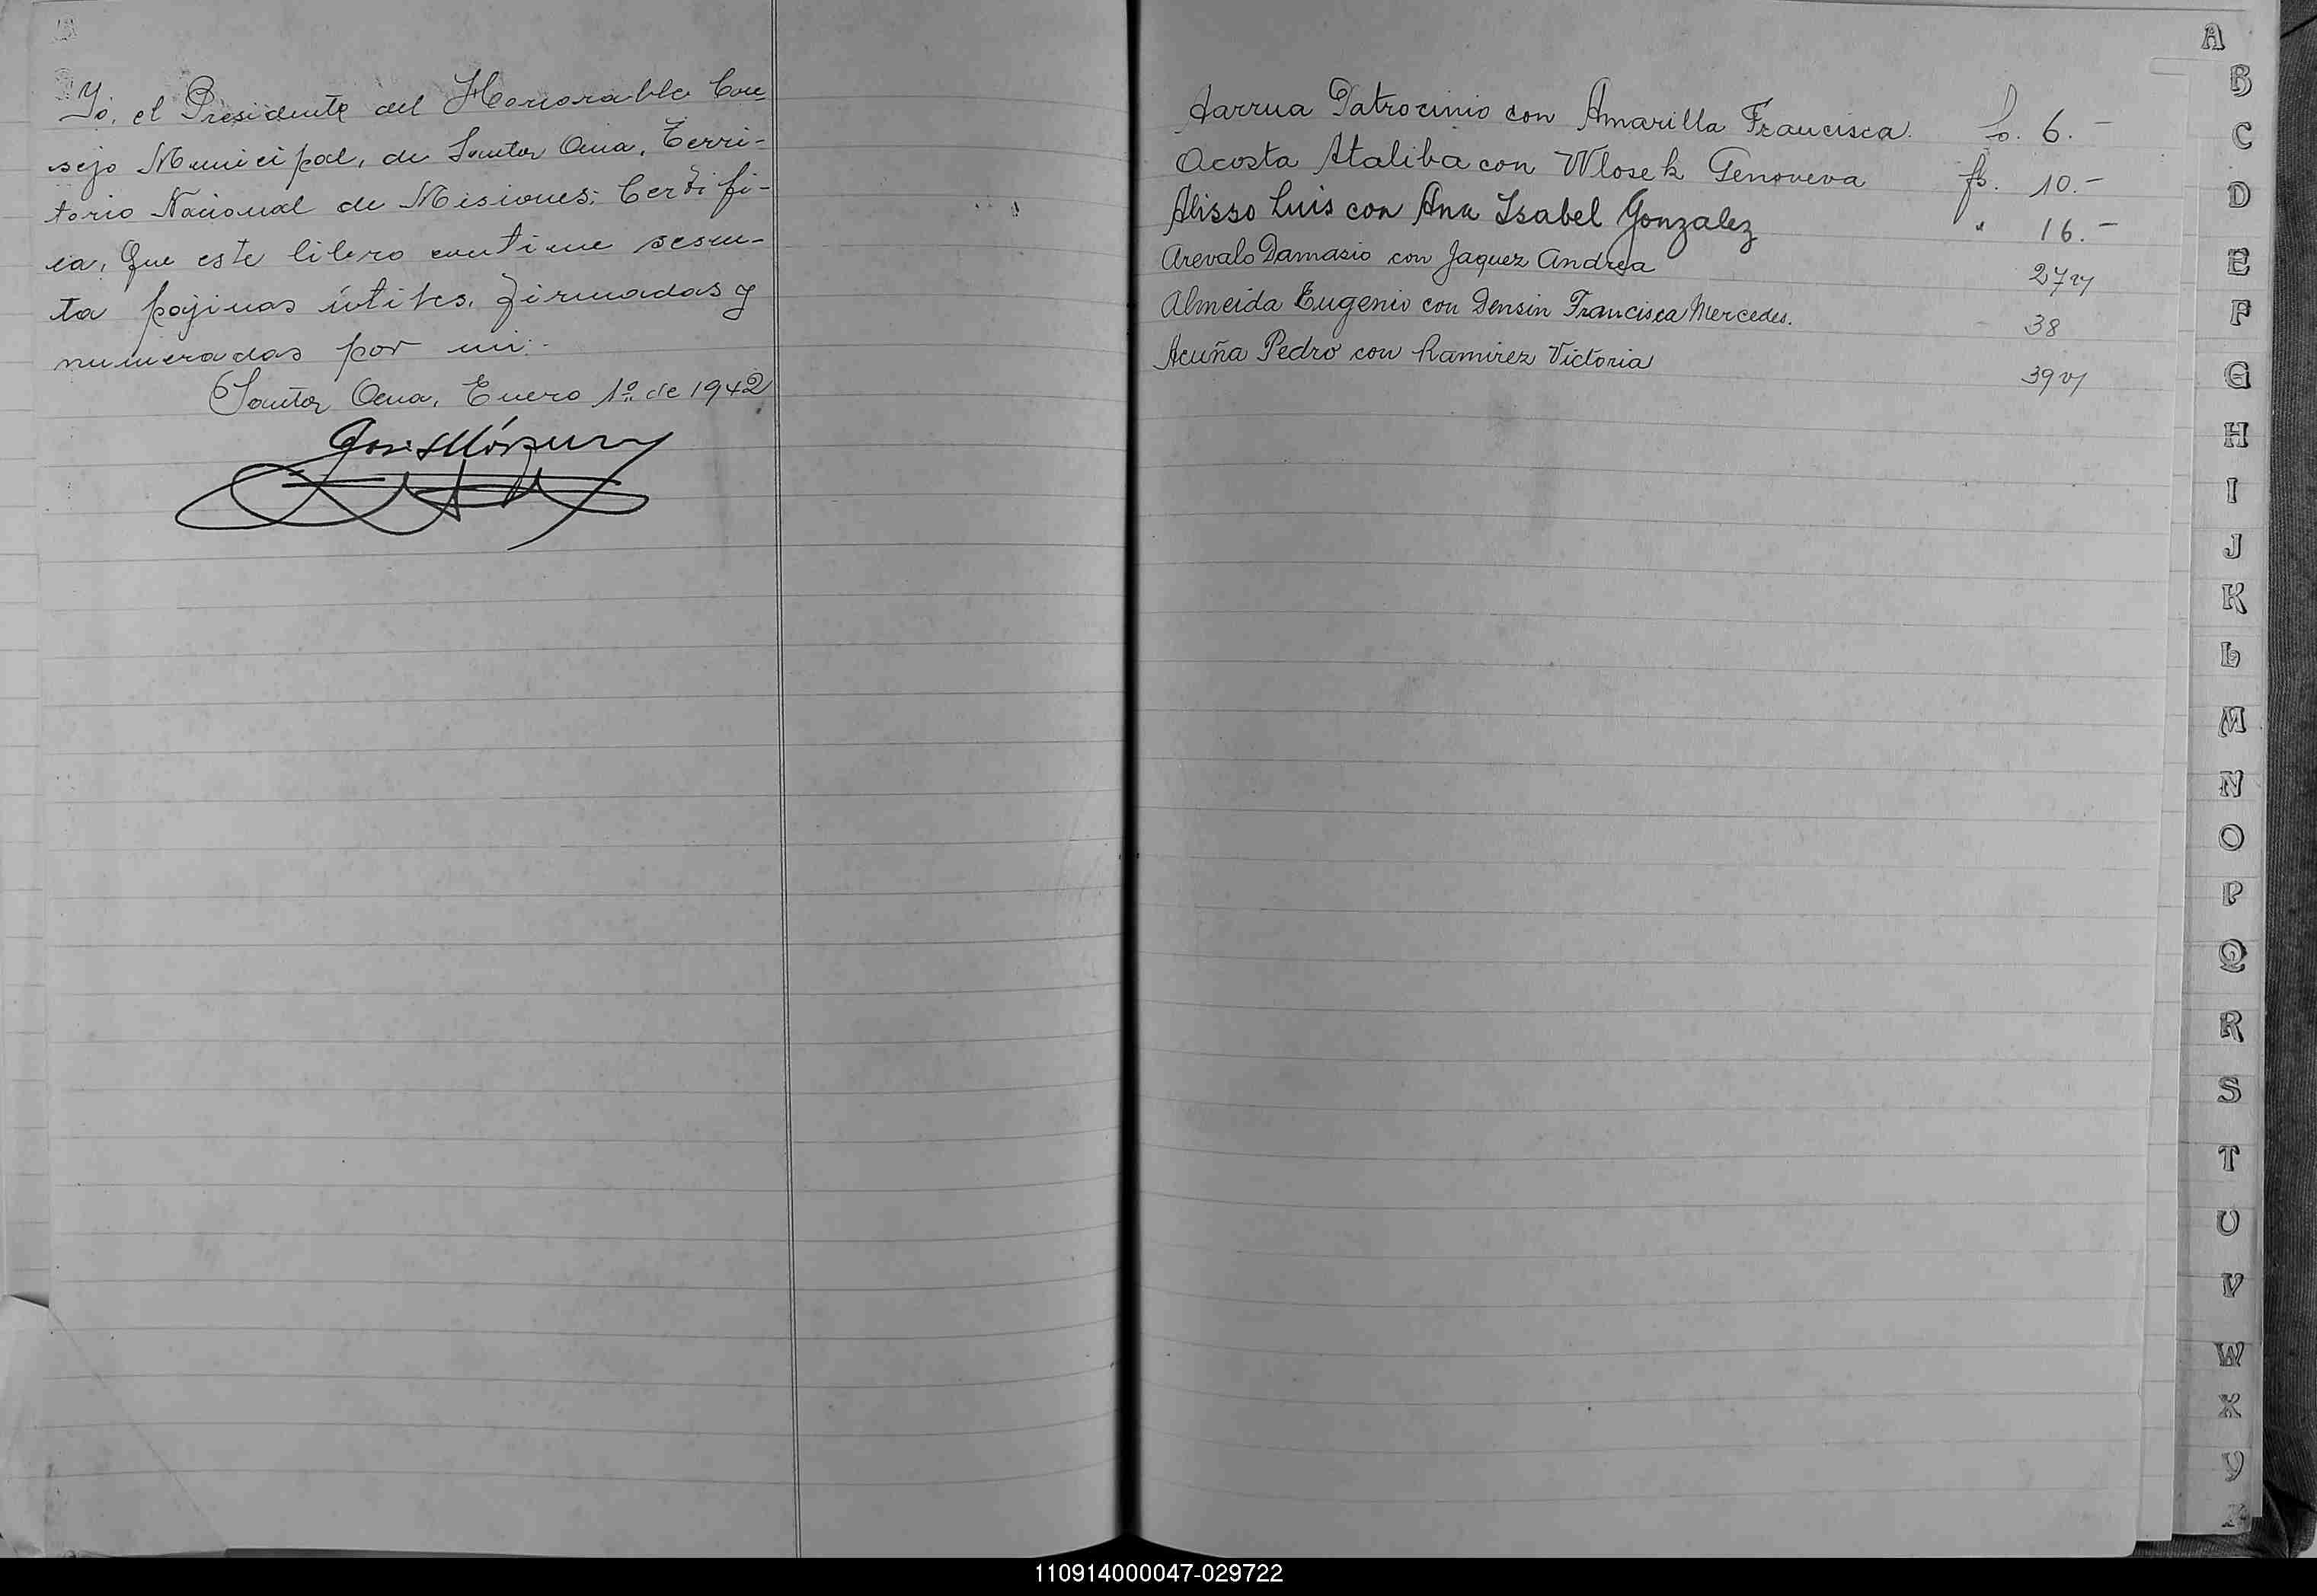 Yo, el Presidente del Honorable Con-
sejo Municipal, de Santa Ana, Terri-
torio Nacional de Misiones; Certifi-
ca, Que este libro contiene sesen-
ta pájinas útiles, firmadas y
numeradas por mi.-
Santa Ana, Enero 1º de 1942
Aarrua Patrocinio con Amarilla Francisca. fo. 6.-
Acosta Ataliba con Wlosek Genoveva fo. 10.-
Alisso Luis con Ana Isabel Gonzalez " 16.-
Arevalo Damasio con Jaquez Andrea 27
Almeida Eugenio con Densin Francisca Mercedes. 38
Acuña Pedro con Ramirez Victoria 39
A
B
C
D
E
F
G
H
I
J
K
L
M
N
O
P
Q
R
S
T
U
V
W
X
Y
Z
110914000047-029722